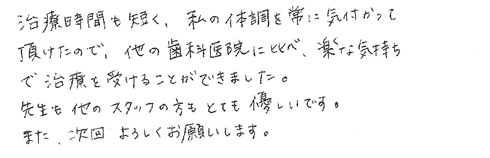 治療時間も短く、私の体調を常に気付かって
頂けたので、他の歯科医院に比べ、楽な気持ち
で治療を受けることができました。
先生も他のスタッフの方もとても優しいです。
また、次回よろしくお願いします。